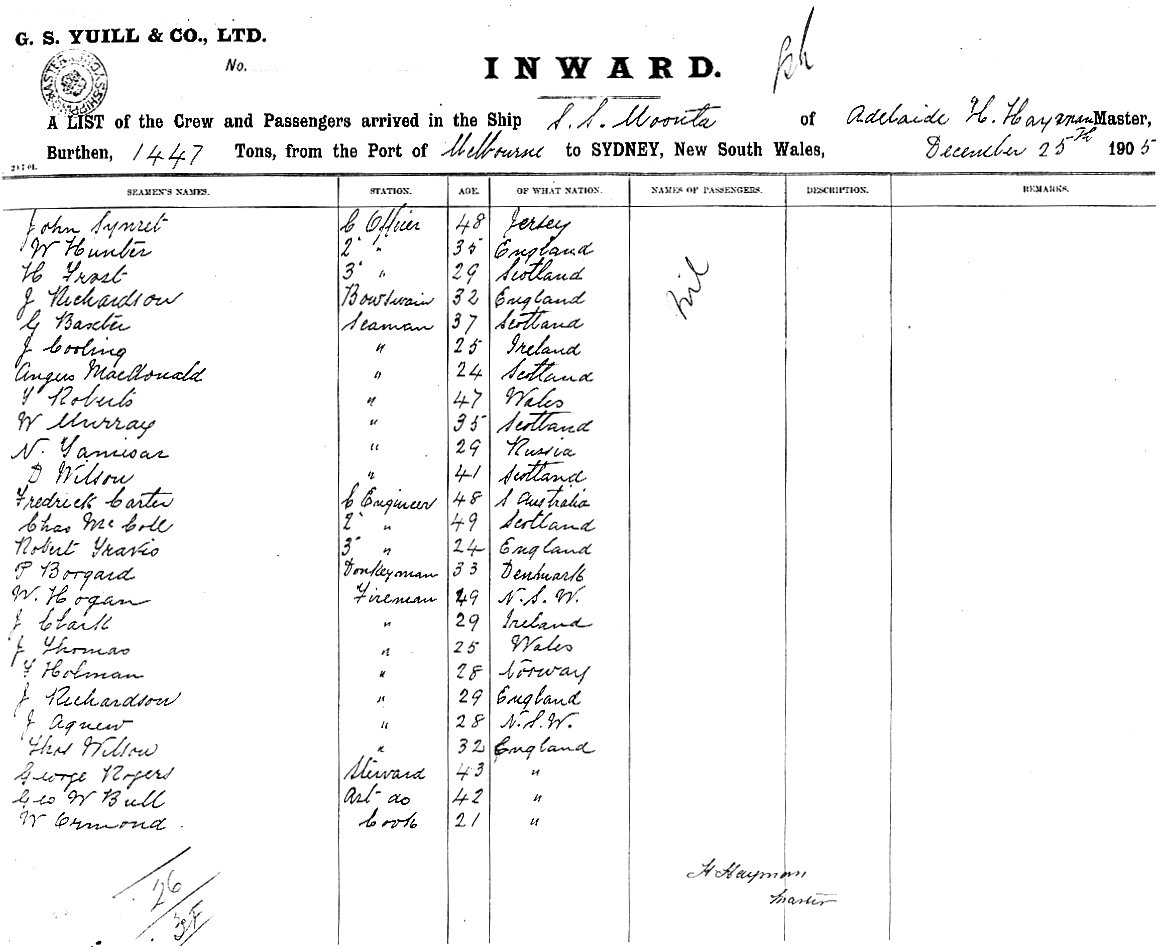 G. S. YUILL & CO., LTD.
No.
INWARD.
A LIST of the Crew and Passengers arrived in the Ship S.S. Moonta of Adelaide H. Hayman Master,
Burthen, 1447 Tons, from the Port of Melbourne to SYDNEY, New South Wales, December 25th 1905
SEAMEN'S NAMES. STATION. AGE. OF WHAT NATION. NAMES OF PASSENGERS. DESCRIPTION. REMARKS.
John Synret C Officer 48 Jersey
W Hunter 2" " 35 England
H Frost 3" " 29 Scotland
nil
J Richardson Bowswain 32 England
G Baxter Seaman 37 Scotland
J Cooling " 25 Ireland
Angus MacDonald " 24 Scotland
T Roberts " 47 Wales
W Murray " 35 Scotland
N. " 29 Russia
D Wilson " 41 Scotland
Fredrick Carter C Engineer 48 S Australia
Chas McColl 2" " 49 Scotland
Robert Travis 3" " 24 England
P Borgard Donkeyman 33 Denmark
W. Hogan Fireman 49 N.S.W.
J Clark " 29 Ireland
J Thomas " 25 Wales
T Holman " 28 Norway
J Richardson " 29 England
J Agnew " 28 N.S.W.
Thos Wilson " 32 England
George Rogers Steward 43 "
Geo W Bull Ast do 42 "
W Ormond Cook 21 "
H Hayman
Master
26